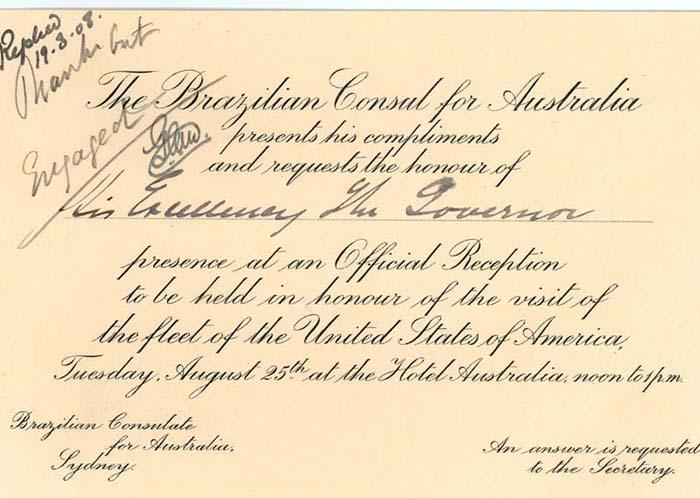 Replied
19.3.08.
Thanks but
Engaged
The Brazilian Consul for Australia
presents his compliments
and requests the honour of
His Excellency The Governor
presence at an Official Reception
to be held in honour of the visit of
the fleet of the United States of America,
Tuesday, August 25th at the Hotel Australia, noon to 1 p.m.
Brazilian Consulate
for Australia,
Sydney.
An answer is requested
to the Secretary.